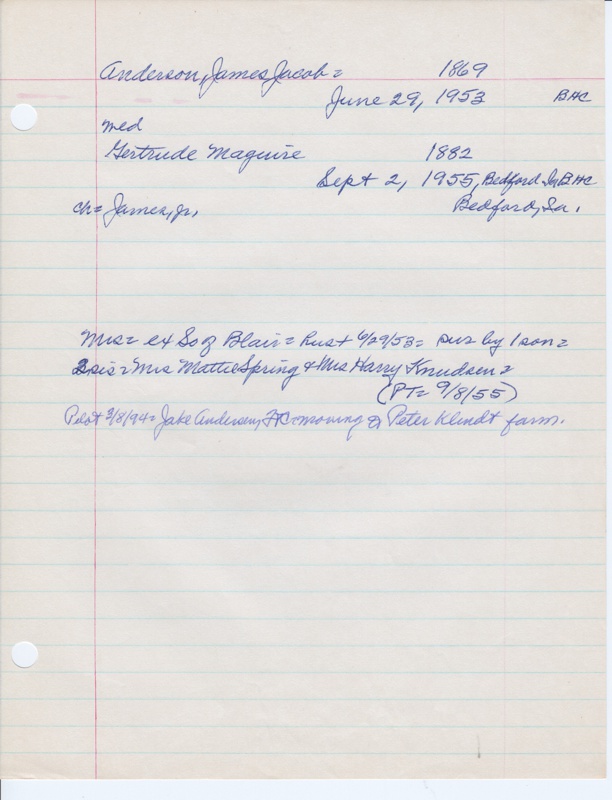 Anderson, James Jacob = 1869
June 29, 1953 BHC
med
Gertrude Maguire 1882
Sept 2, 1955, Bedford, Ia BHC
ch= James, Jr. Bedford, Ia.
Mrs= ex So of Blair = hus + 6/29/53 = sur by 1 son =
2 sis = Mrs Mattie Spring + Mrs Harry Knudsen =
(PT= 9/8/55)
Pilot 3/8/94 = Jake Anderson, FtC = moving Peter Klindt farm.